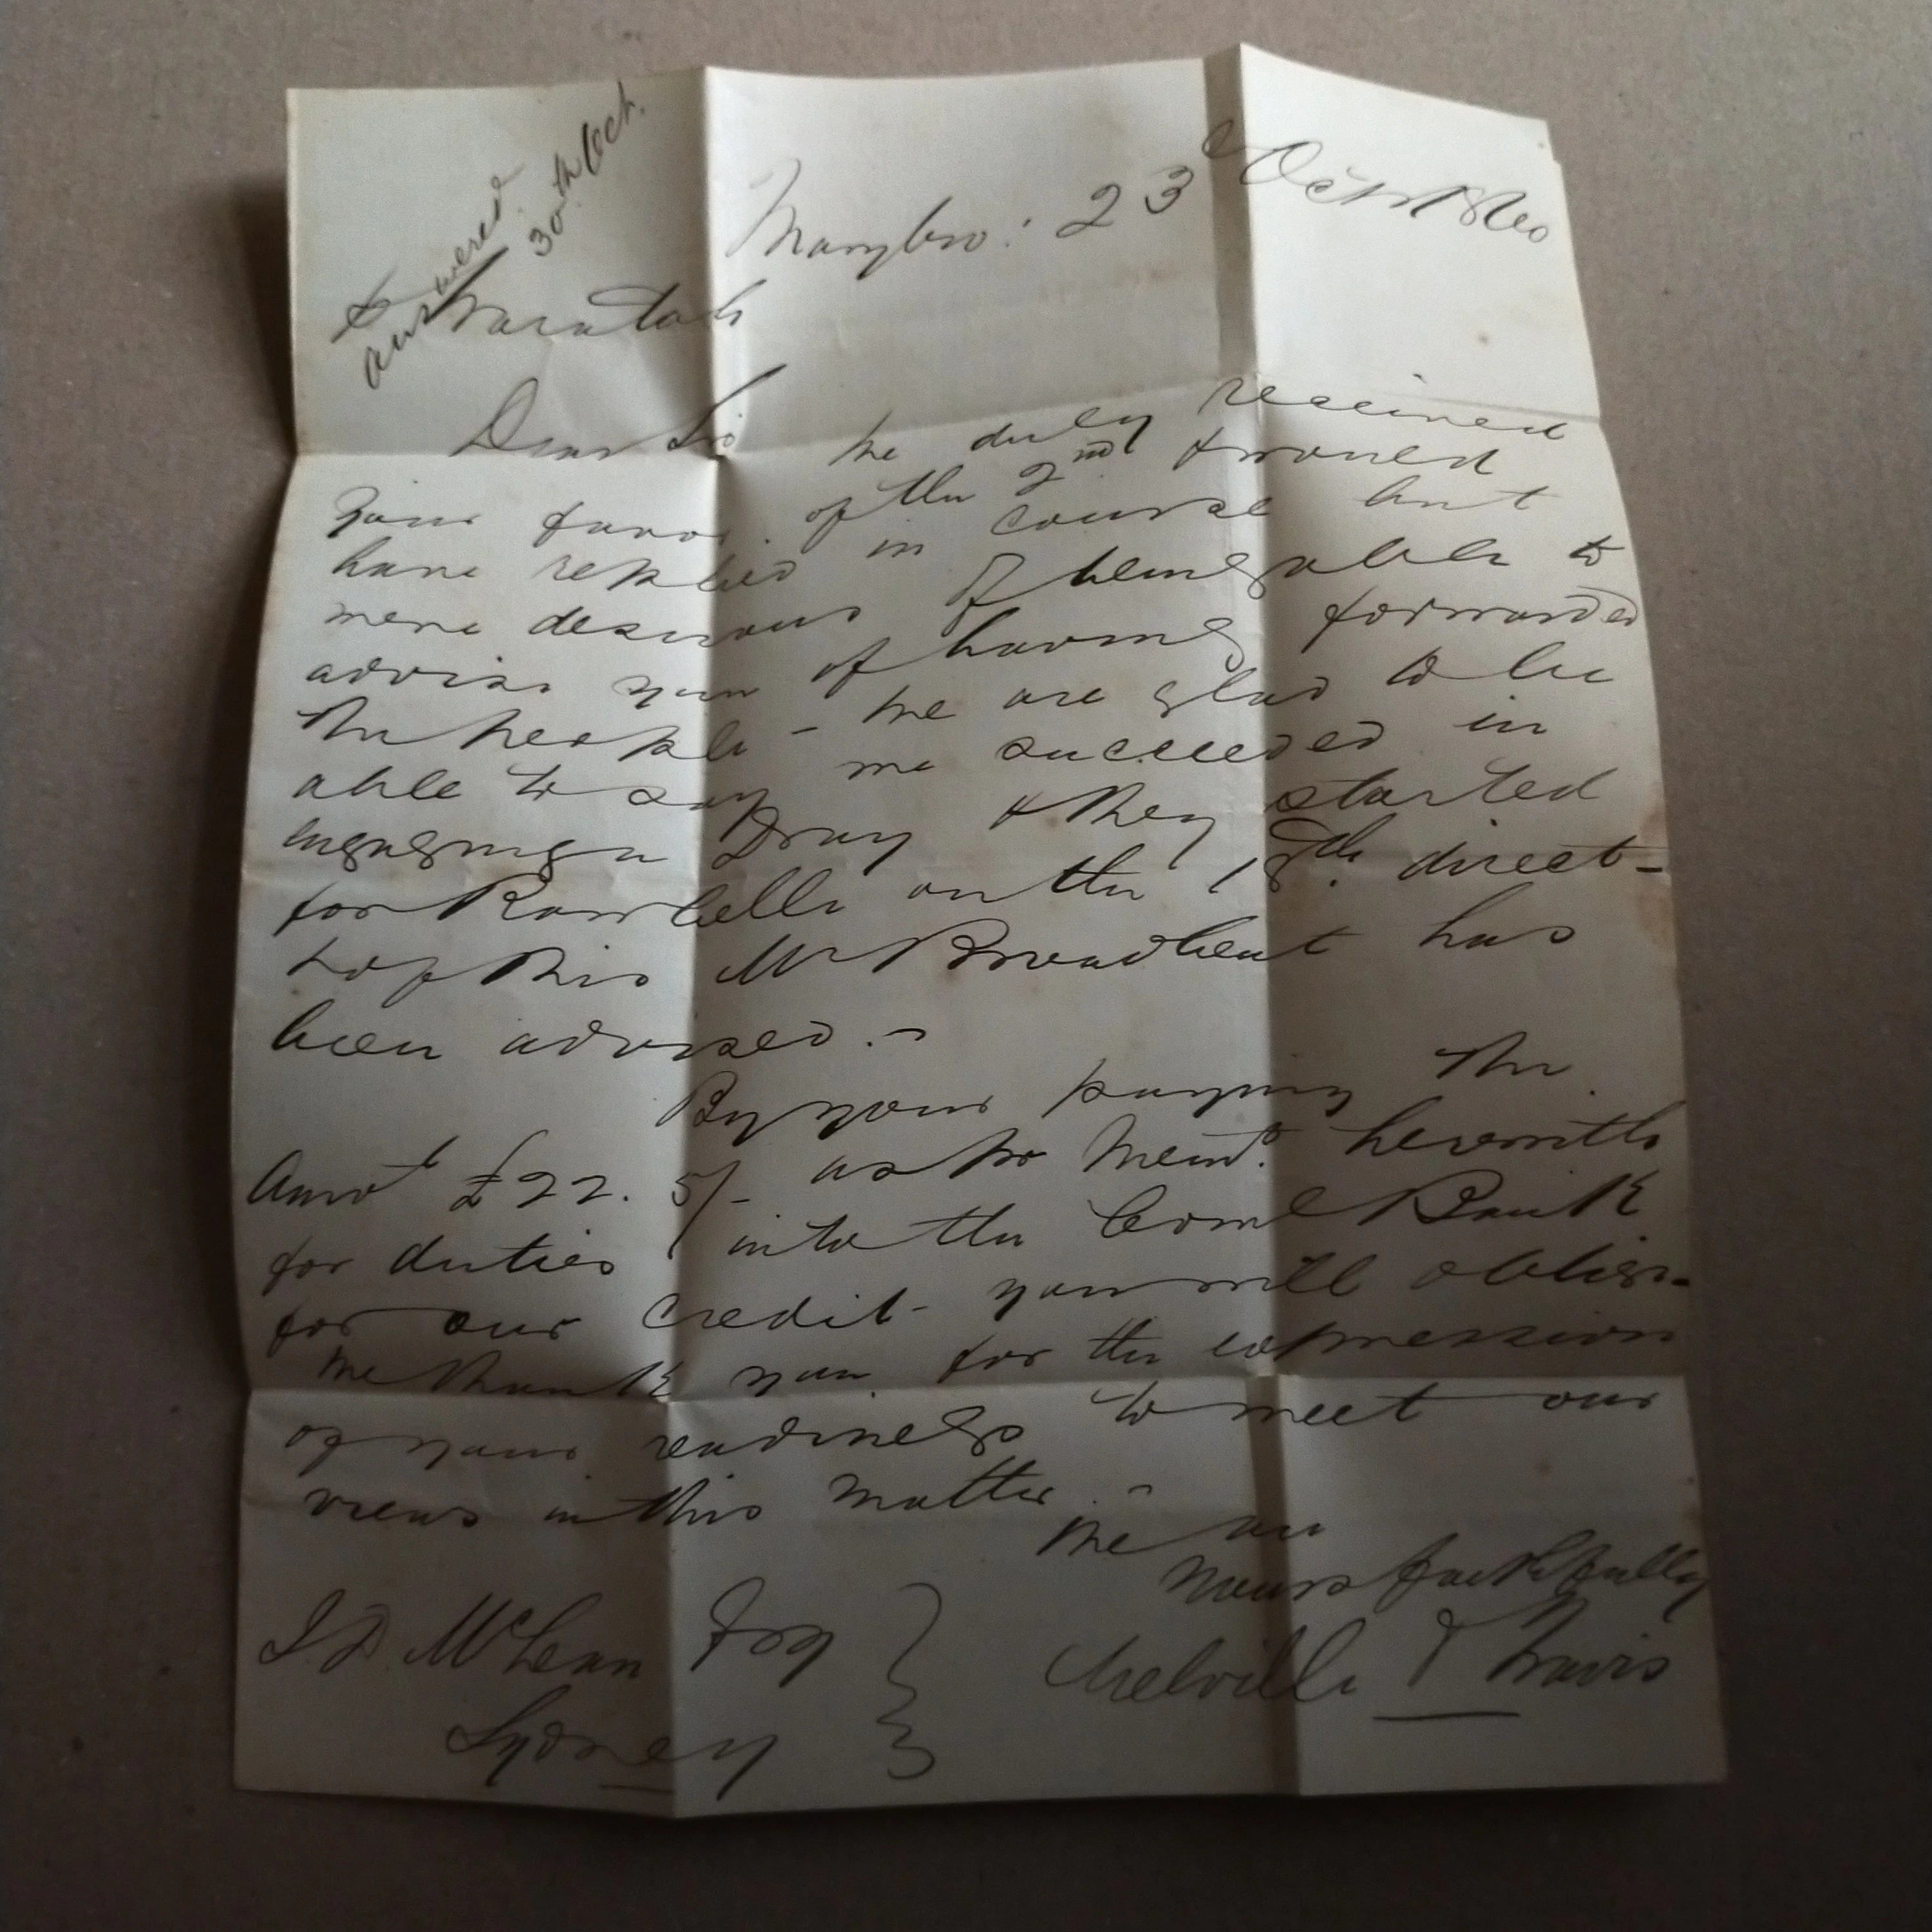 answered
30th Oct.
Marybro: 23d Octr 1860
Waratah
Dear Sir We duly received
your favor of the 2nd & would
have replied in course but
were desirous of being able to
advise you of having forwarded
the people - We are glad to be
able to say we succeeded in
engaging a Dray & they started
for Rawbelle on the 18th. direct -
& of this Mr Broadbent has
been advised. -
By your paying the
Amot £22. 5/- as pr Memo. herewith
for duties into the Coml Bank
for our credit - you will oblige -
We thank you for the expression
of your readiness to meet our
views in this matter. -
We are
Yours faithfully
Melville & Travis
J. D. McLean Esq
Sydney